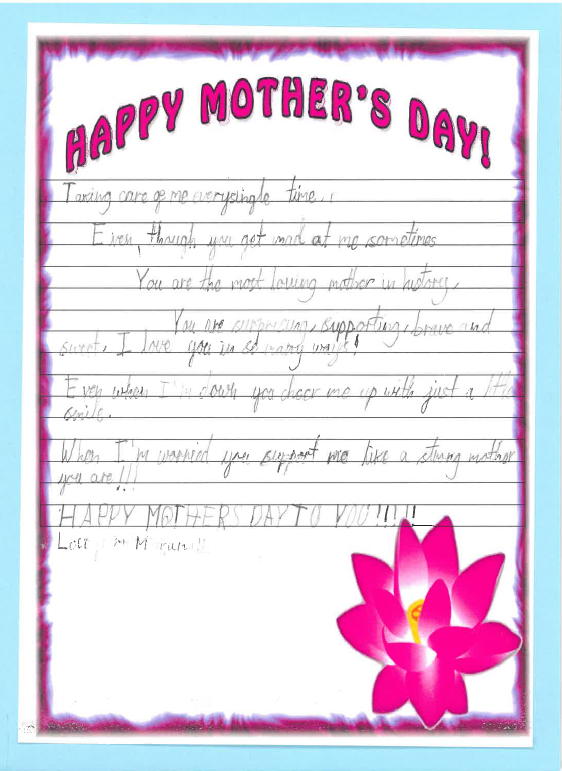 HAPPY MOTHER'S DAY!
Taking care of me everysingle time..
Even, though you get mad at me sometimes
You are the most loving mother in history,
You are surprising, supporting, brave and
sweet, I love you in so many ways!
Even when I'm down you cheer me up with just a
smile.
When I'm worried you support me like a strong mother
you are!!!
HAPPY MOTHERS DAY TO YOU!!!!!!